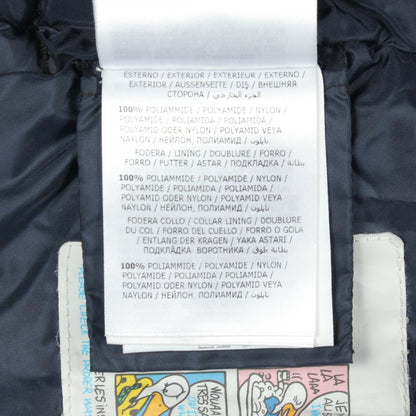 ESTERNO / EXTERIOR / EXTERIEUR / EXTERNO
/ EXTERIOR / AUSSENSEITE / DIŞ / ВНЕШНЯЯ
СТОРОНА / الجزء الخارجي
100% POLIAMMIDE / POLYAMIDE / NYLON /
POLYAMIDE / POLIAMIDA / POLIAMIDA /
POLYAMID ODER NYLON / POLYAMID VEYA
NAYLON / НЕЙЛОН, ПОЛИАМИД / نايلون
FODERA / LINING / DOUBLURE / FORRO
/ FORRO / FUTTER / ASTAR / ПОДКЛАДКА / بطانة
100% POLIAMMIDE / POLYAMIDE / NYLON /
POLYAMIDE / POLIAMIDA / POLIAMIDA /
POLYAMID ODER NYLON / POLYAMID VEYA
NAYLON / НЕЙЛОН, ПОЛИАМИД / نايلون
FODERA COLLO / COLLAR LINING / DOUBLURE
DU COL / FORRO DEL CUELLO / FORRO O GOLA
/ ENTLANG DER KRAGEN / YAKA ASTARI /
ПОДКЛАДКА ВОРОТНИКА / بطانة طوق
100% POLIAMMIDE / POLYAMIDE / NYLON /
POLYAMIDE / POLIAMIDA / POLIAMIDA /
POLYAMID ODER NYLON / POLYAMID VEYA
NAYLON / НЕЙЛОН, ПОЛИАМИД / نايلون
PLEASE CHECK THE PROPER